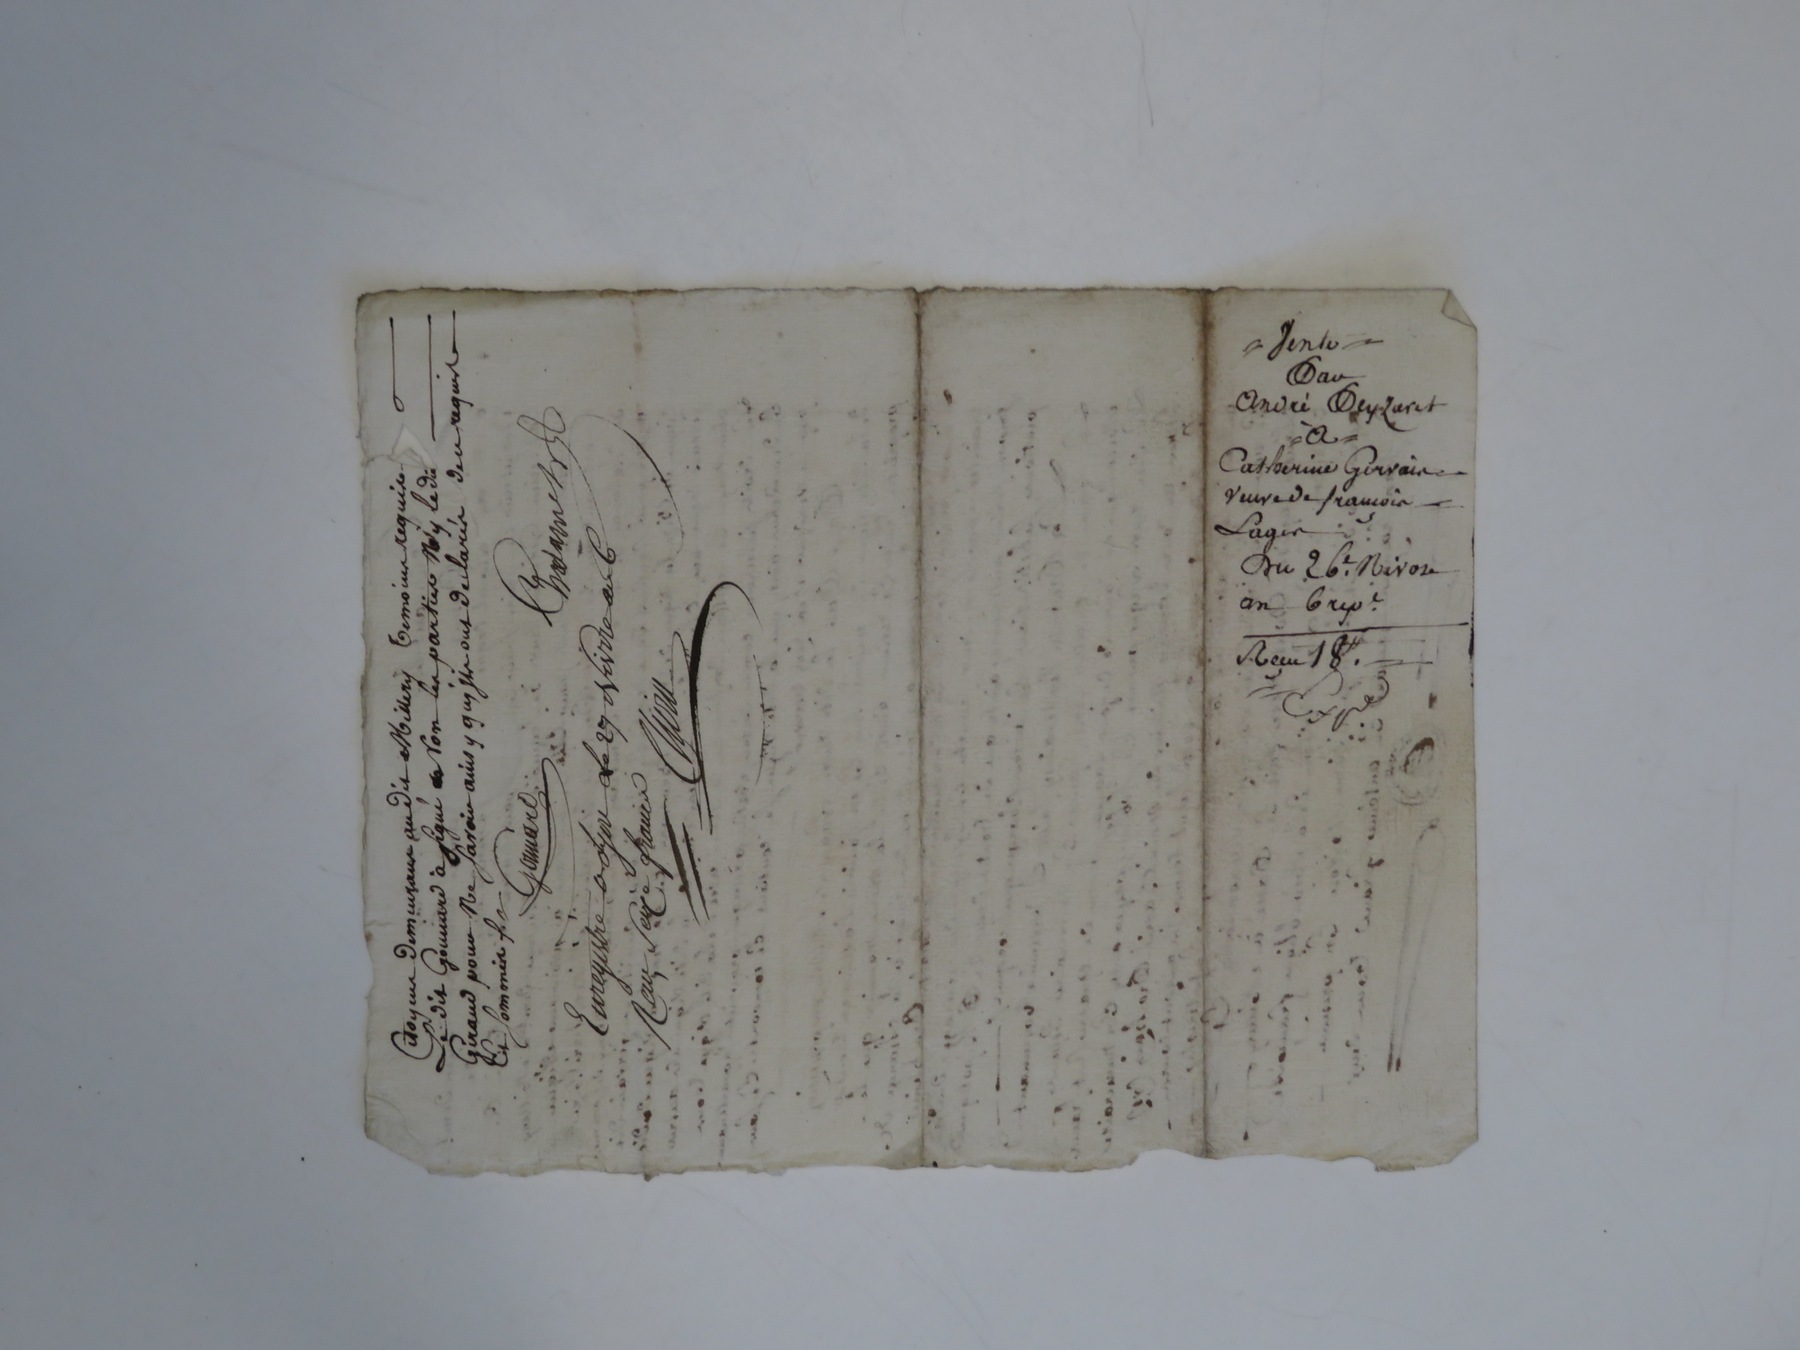 Citoyens demeurant audit Millery temoins requis
Le dit Gouuard a signé et non les parties N'y le dit
Giraud pour Ne savoir ainsy quils ont declaré de ce requis
Gouuard
Enregistré a le 27 Nivose an 6
Reçu francs
Vente
Par
André Deyzaret
à
Catherine Gervais
veuve de francois
Lager
Du 26e. Nivose
an 6 repe.
Reçu 18